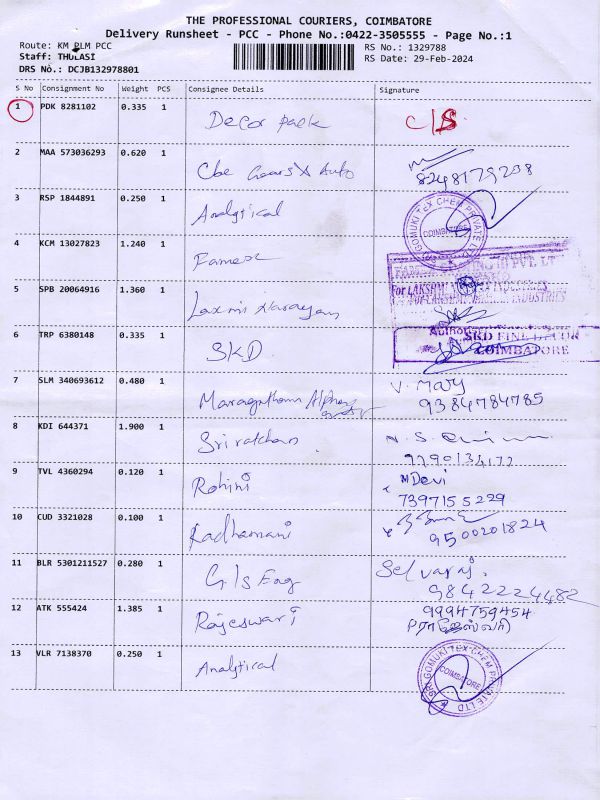 THE PROFESSIONAL COURIERS, COIMBATORE
Delivery Runsheet - PCC - Phone No.:0422-3505555 - Page No.:1
Route: KM PLM PCC RS No.: 1329788
Staff: THULASI RS Date: 29-Feb-2024
DRS No.: DCJB132978801
S No Consignment No Weight PCS Consignee Details Signature
1 PDK 8281102 0.335 1 Decor pack C/S
2 MAA 573036293 0.620 1 Cbe Gears X Auto 8248179208
3 RSP 1844891 0.250 1 Analytical
GOMUKI TEX CHEM PRIVATE LTD
COIMBATORE
4 KCM 13027823 1.240 1
5 SPB 20064916 1.360 1 Laxmi Narayan
For LAKSHMI INDUSTRIES
6 TRP 6380148 0.335 1 SKD
SKD FINE DECOR
COIMBATORE
7 SLM 340693612 0.480 1 Maragatham Alpha V. Mary
9384784785
8 KDI 644371 1.900 1 N. S.
9 TVL 4360294 0.120 1 Rohini M Devi
7397155229
10 CUD 3321028 0.100 1 Radhamani 9500201824
11 BLR 5301211527 0.280 1 Selvaraj.
9842224482
12 ATK 555424 1.385 1 Rajeswari 9994759454
13 VLR 7138370 0.250 1 Analytical
SRI GOMUKI TEX CHEM PRIVATE LTD
COIMBATORE